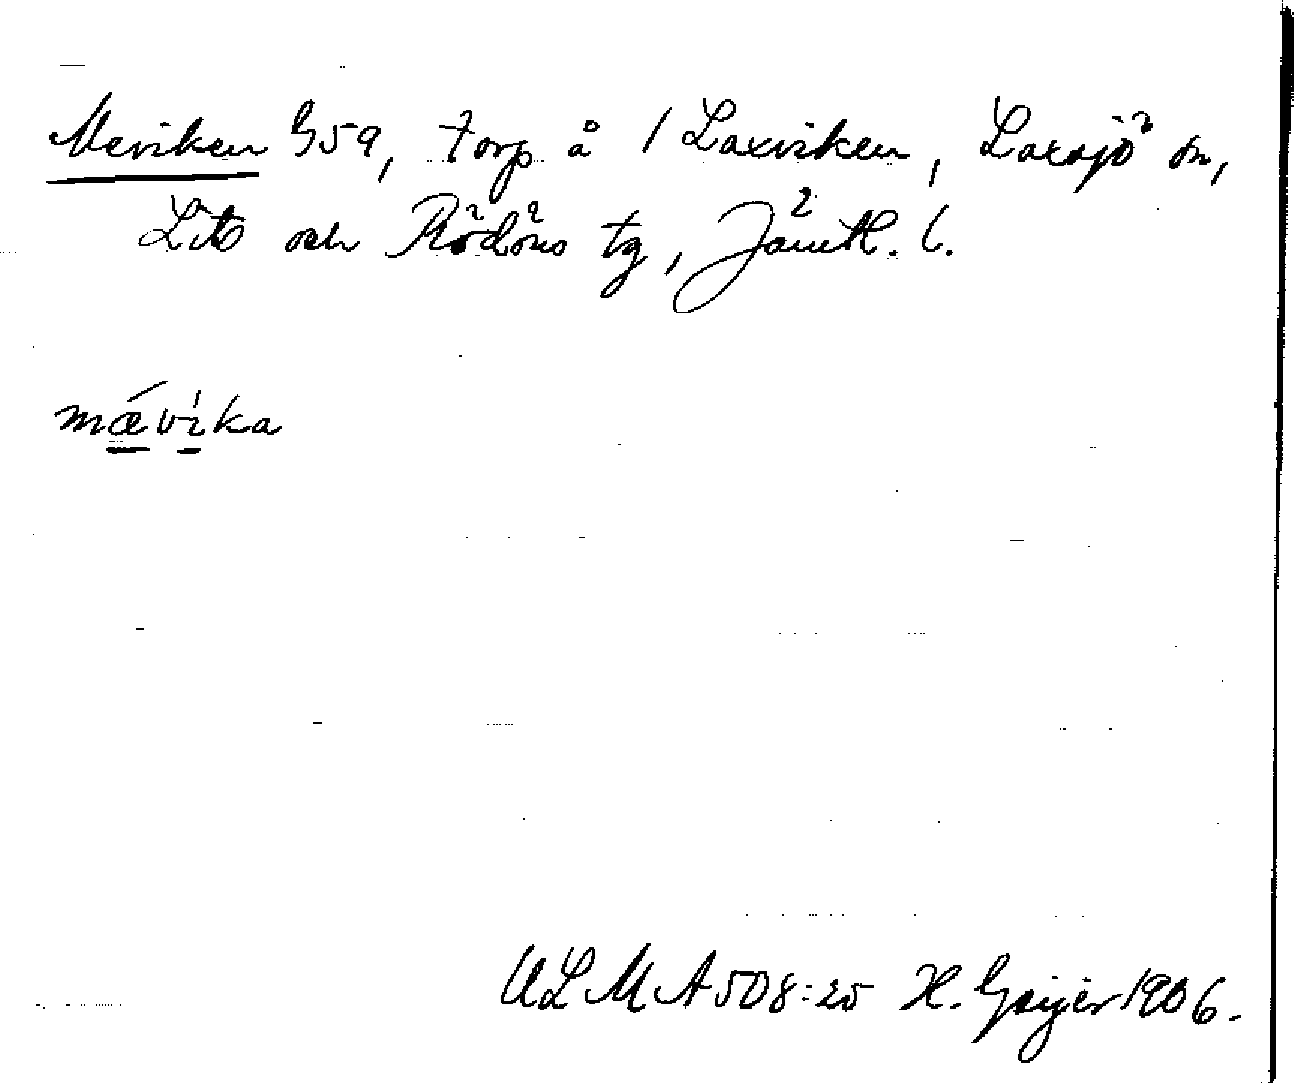 Meviken G59, torp å 1 Laxviken, Laxsjö sn,
Lits och Rödöns tg, Jämtl. l.
mǽvika
ULMA 508:25 H. Geijer 1906.